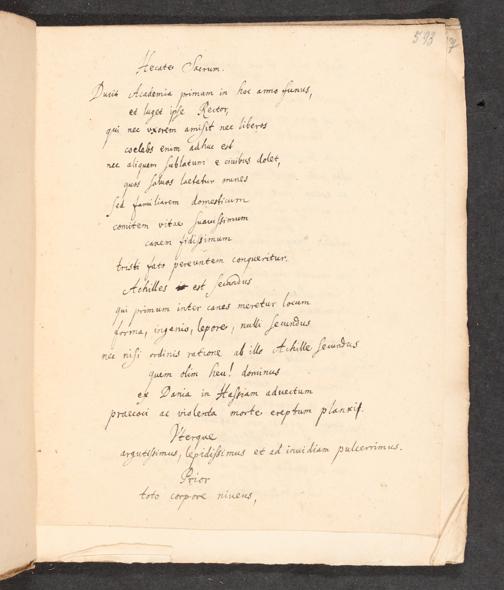 593
Hecatae Sacrum.
Ducit Academia primam in hoc anno funus,
et luget ipse Rector,
qui nec uxorem amisit nec liberos
coelebs enim adhuc est
nec aliquem sublatum e civibus dolet,
quos salvos laetatur omnes
sed familiarem domesticum
comitem vitae suavissimum
canem fidissimum
tristi fato pereuntem conqueritur.
Achilles est secundus
qui primum inter canes meretur locum
forma, ingenio, lepore, nulli secundus
nec nisi ordinis ratione ab illo Achille secundus
quem olim heu! dominus
ex Dania in Hassiam advectum
praecoci ac violenta morte ereptum planxit.
Uterque
argutissimus, lepidissimus et ad invidiam pulcerrimus.
Prior
toto corpore niveus,